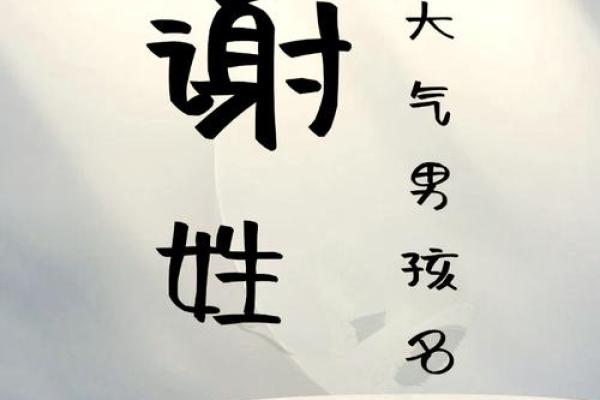 谢姓
大气男孩名